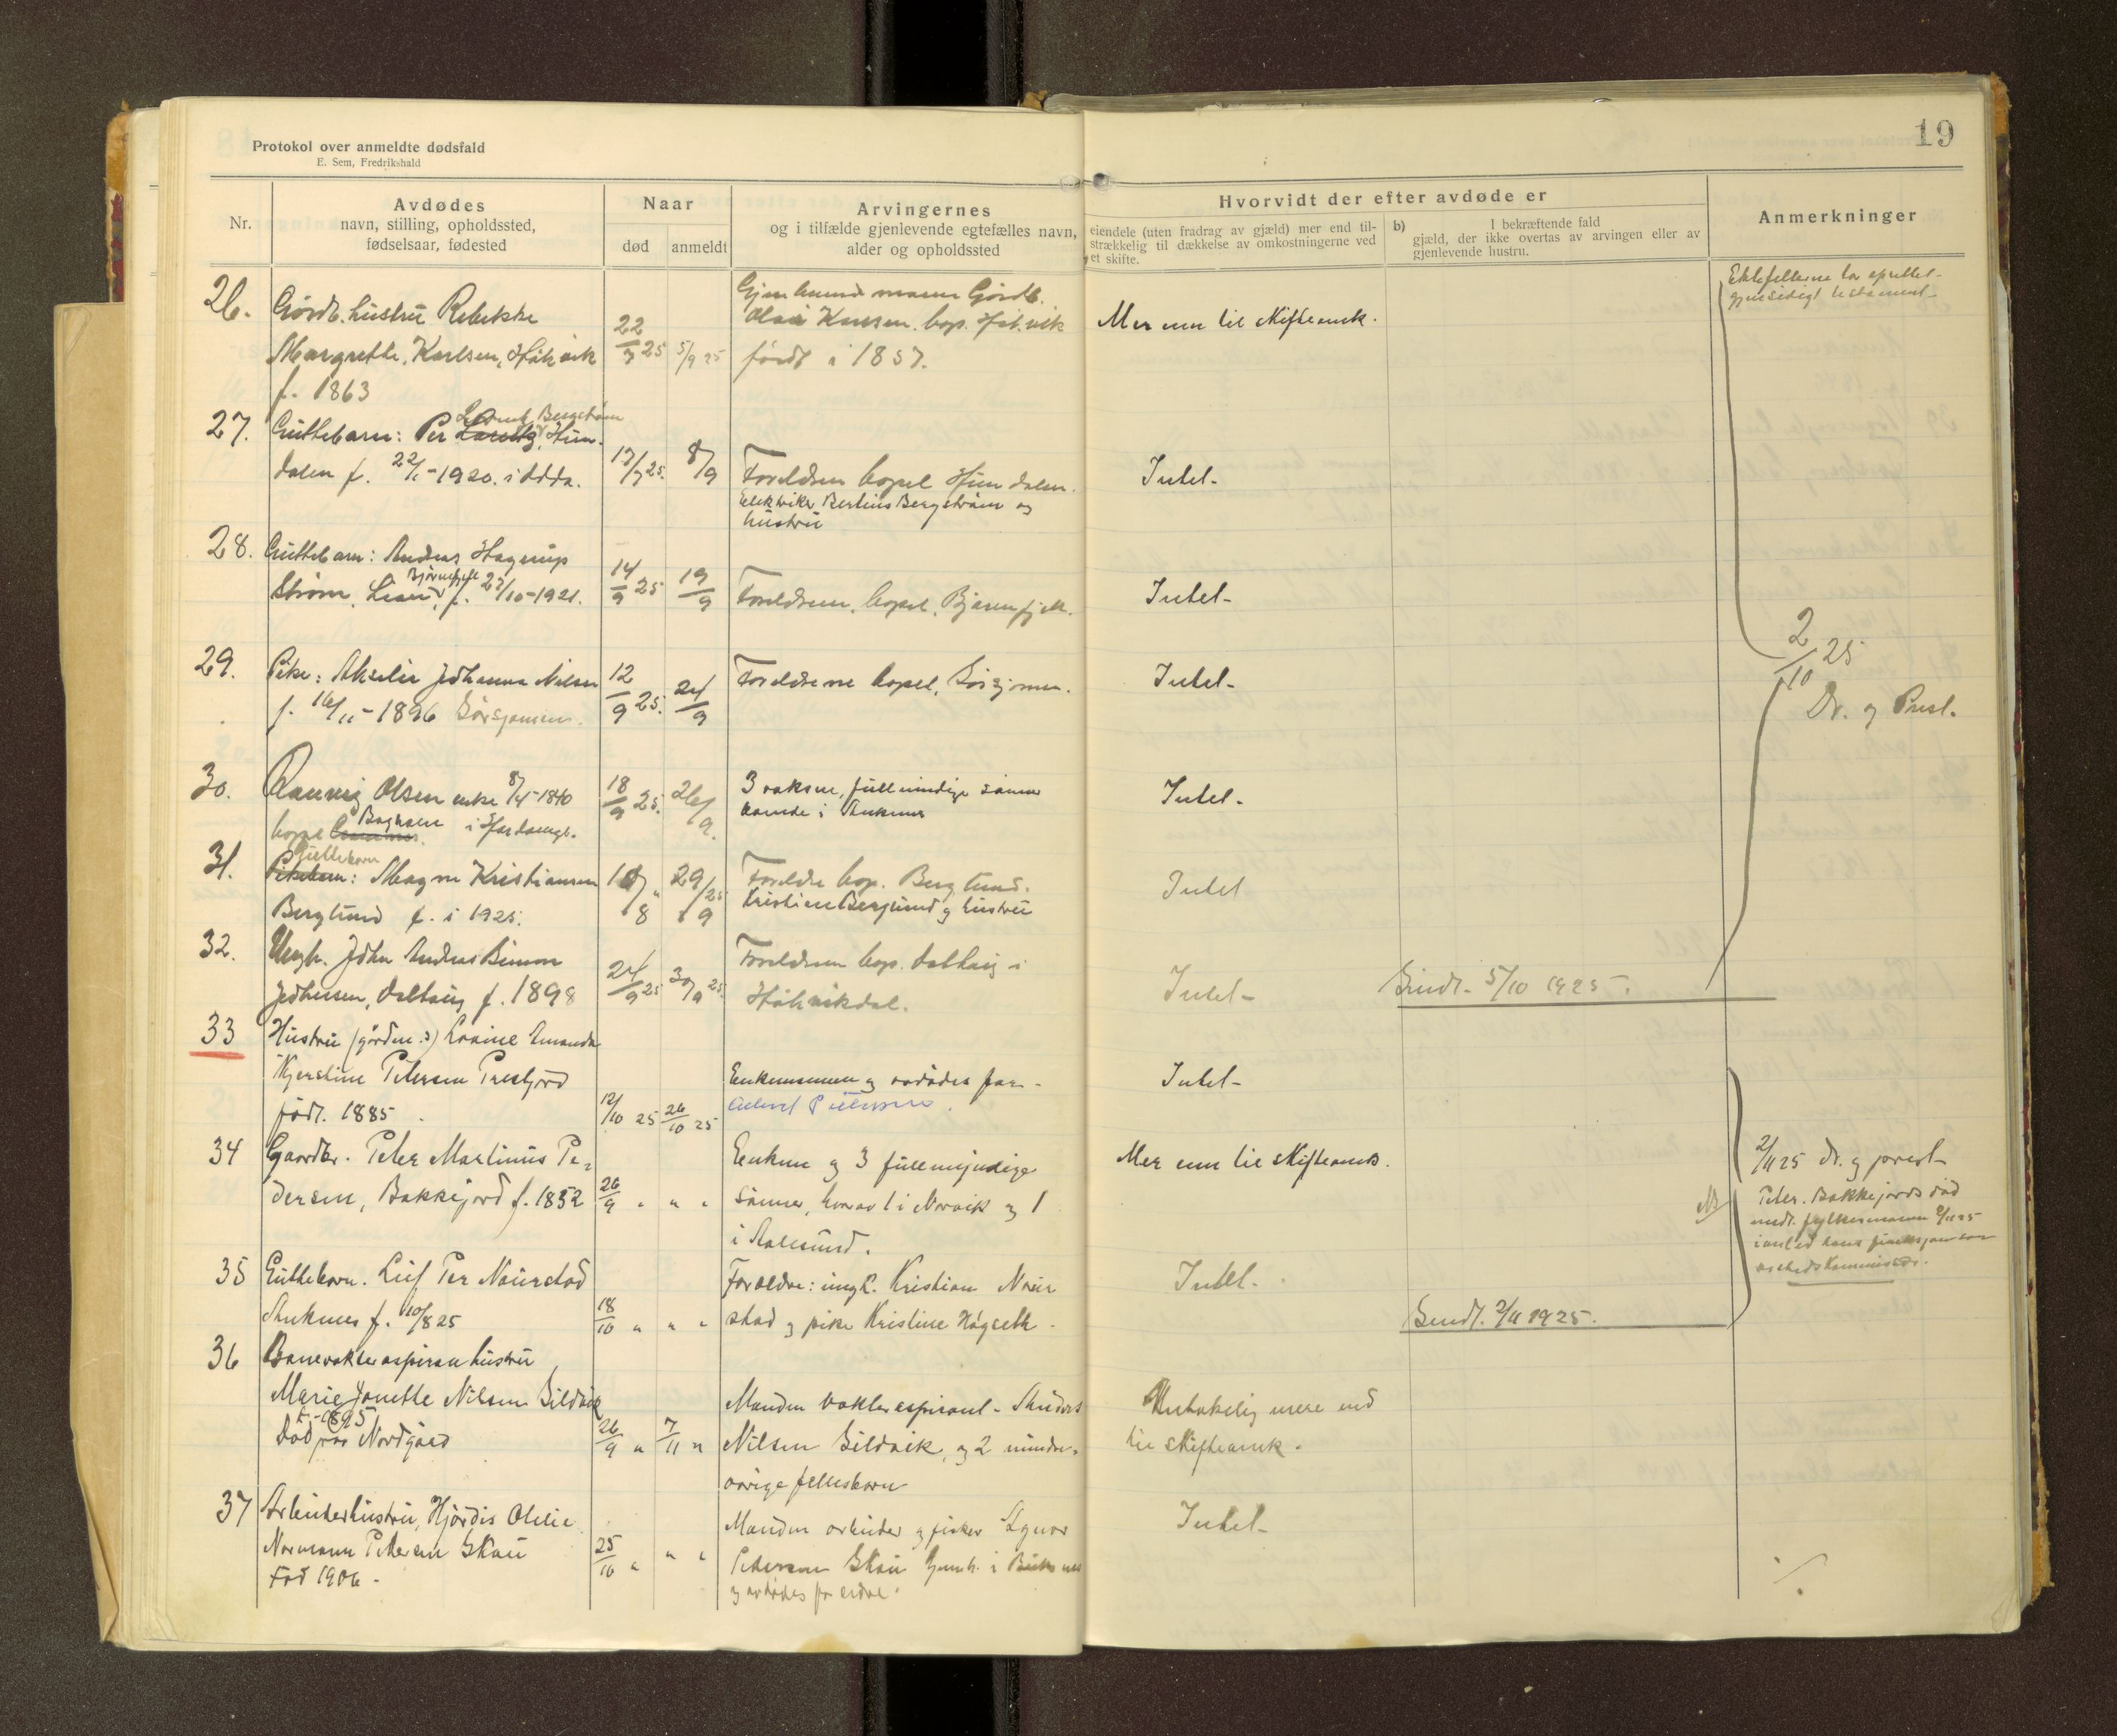 Protokol over anmeldte dødsfald
E. Sem, Fredrikshald
19
Nr.
Avdødes
navn, stilling, opholdssted,
fødselsaar, fødested
Naar
død
anmeldt
Arvingernes
og i tilfælde gjenlevende egtefælles navn,
alder og opholdssted
Hvorvidt der efter avdøde er
eiendele (uten fradrag av gjæld) mer end til-
strækkelig til dækkelse av omkostningerne ved
et skifte.
b) I bekræftende fald
gjæld, der ikke overtas av arvingen eller av
gjenlevende hustru.
Anmerkninger
26. Gårdb. hustru Rebekke
Margrethe Karlsen, Håkvik
f. 1863
22/7 25 5/9 25
mann Gårdb.
Karlsen. bop. Håkvik
født i 1857.
Mer enn til skifteomk.
Ektefellerne har oprettet
gjensidigt testament
27. Guttebarn: Per Bergstrøm Hun-
dalen f. 22/1-1920. i Odda.
8/9
Foreldren bopel Hundalen.
Elektriker Bertius Bergstrøm og
hustru
Intet-
28. Guttebarn: Andreas Hagerup
Strøm, Bjørnefjell f. 23/10-1921.
14/9 25 19/9
Foreldren, bopel, Bjørnfjell.
Intet-
29. Pike: Johanna Nilsen
f. 16/11-1896 Sørsjonen.
12/9 25. 24/9
Foreldrene bopel, Sørsjonen.
Intet-
2/10 25
Dr. og Prest.
30. Olsen enke 8/4-1840
bopel i
18/9 25. 26/9.
3 voksne, fullmindige sønner
boende i Ankenes
Intet-
31. Guttebarn: Magne Kristiansen
Berglund f. i 1925.
29/9 25
Foreldre bop. Berglund.
Kristian Berglund og hustru
Intet
32. Ungk. John Andreas Simon
Johnsen, Dalhaug f. 1898
24/9 25 30/9 25.
Foreldren bop. Dalhaug i
Håkvikdal.
Intet-
Sendt- 5/10 1925.
33 Hustru Amanda
Kjerstine Petersen
født. 1885
12/10 25 26/10 25
Enkemannen og avdødes far-
Intet-
34 Gaardbr. Peter Martinus Pe-
dersen, Bakkejord f. 1852
26/9 " " "
Enken og 3 fullmyndige
sønner, hvorav 1 i Narvik og 1
i Aalesund.
Mer enn til skifteomk.
2/11 25 dr. og prest-
NB
Peter. Bakkejords død
medt. fylkesmann 2/11 25
35 Guttebarn. Leif Per Naurstad
Ankenes f. 10/8 25
18/10 " " "
Foreldre: ungk. Kristian Naur
stad og pike Kristine Høgseth-
Intet-
Sendt. 2/11 1925.
36 Banevokteraspirant hustru
Marie Jonette Nilsen Sildvik
f. 1895
Død på Nordgård
26/9 " 7/11 "
Manden vokteraspirant-
Nilsen Sildvik, og 2 mindre-
årige fellesbarn
Antakelig mere end
til skifteomk.
37 Arbeiderhustru, Hjørdis Olelie
Normann Petersen Skau
Fød 1906-
25/10 " " "
Manden arbeider og fisker
Pedersen Skau i
og avdødes foreldre.
Intet-